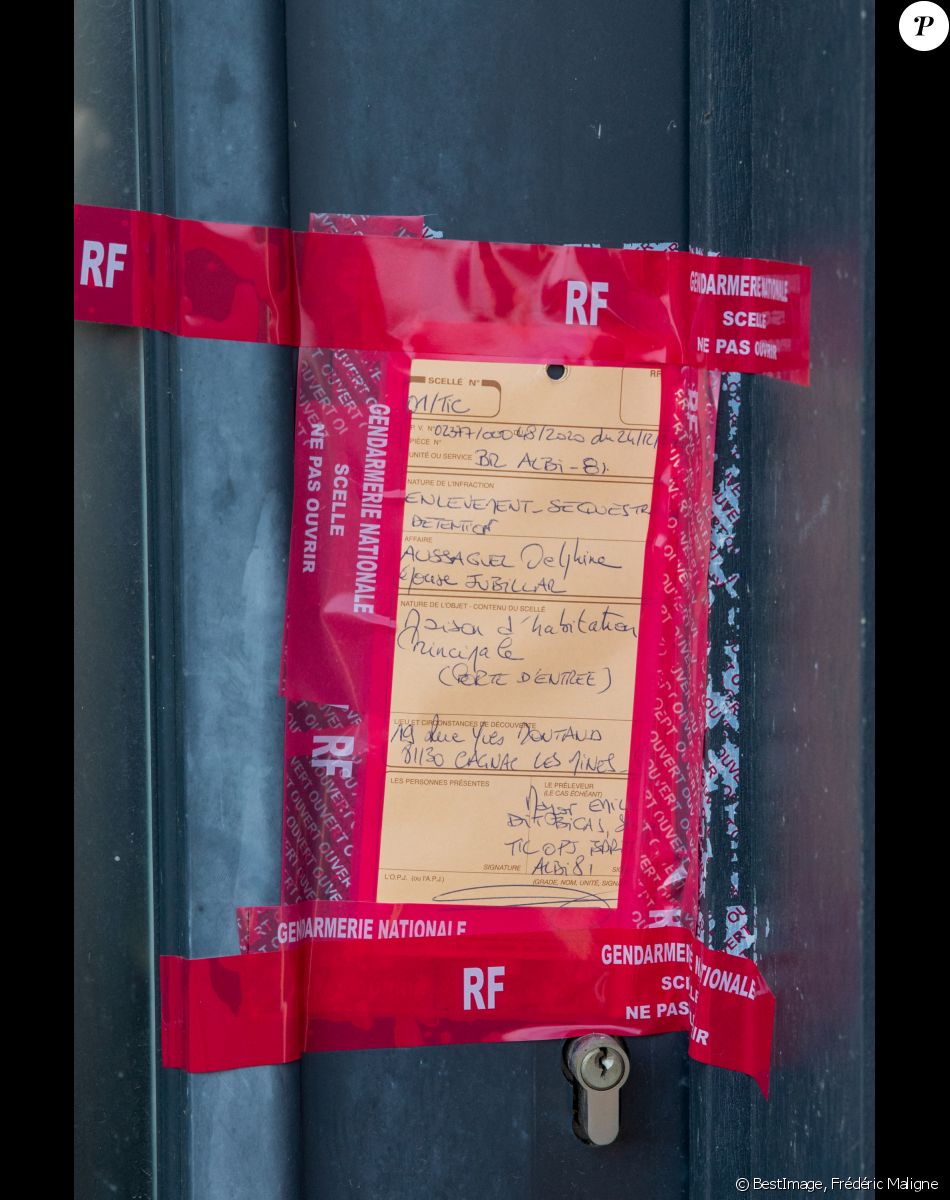 P
RF
RF
GENDARMERIE NATIONALE
SCELLE
NE PAS OUVRIR
SCELLÉ N°
01/TIC
RF
P.V. N° 02377/00048/2020 du 24/12/
PIÈCE N°
UNITÉ OU SERVICE BR ALBI - 81.
NATURE DE L'INFRACTION
ENLEVEMENT - SEQUESTR
DETENTION
AFFAIRE
AUSSAGUEL Delphine
épouse JUBILLAR
NATURE DE L'OBJET - CONTENU DU SCELLÉ
Maison d'habitation
Principale
(PORTE D'ENTREE)
LIEU ET CIRCONSTANCES DE DÉCOUVERTE
19 Rue Yves MONTAND
81130 CAGNAC LES MINES
LES PERSONNES PRÉSENTES
LE PRÉLEVEUR
(LE CAS ÉCHÉANT)
Major
TIC OPJ
ALBI 81
SIGNATURE
L'O.P.J. (ou l'A.P.J.)
(GRADE, NOM, UNITÉ, SIGN
GENDARMERIE NATIONALE
SCELLE
NE PAS OUVRIR
RF
RF
GENDARMERIE NATIONALE
RF
GENDARMERIE NATIONALE
SCELLE
NE PAS
© BestImage, Frédéric Maligne